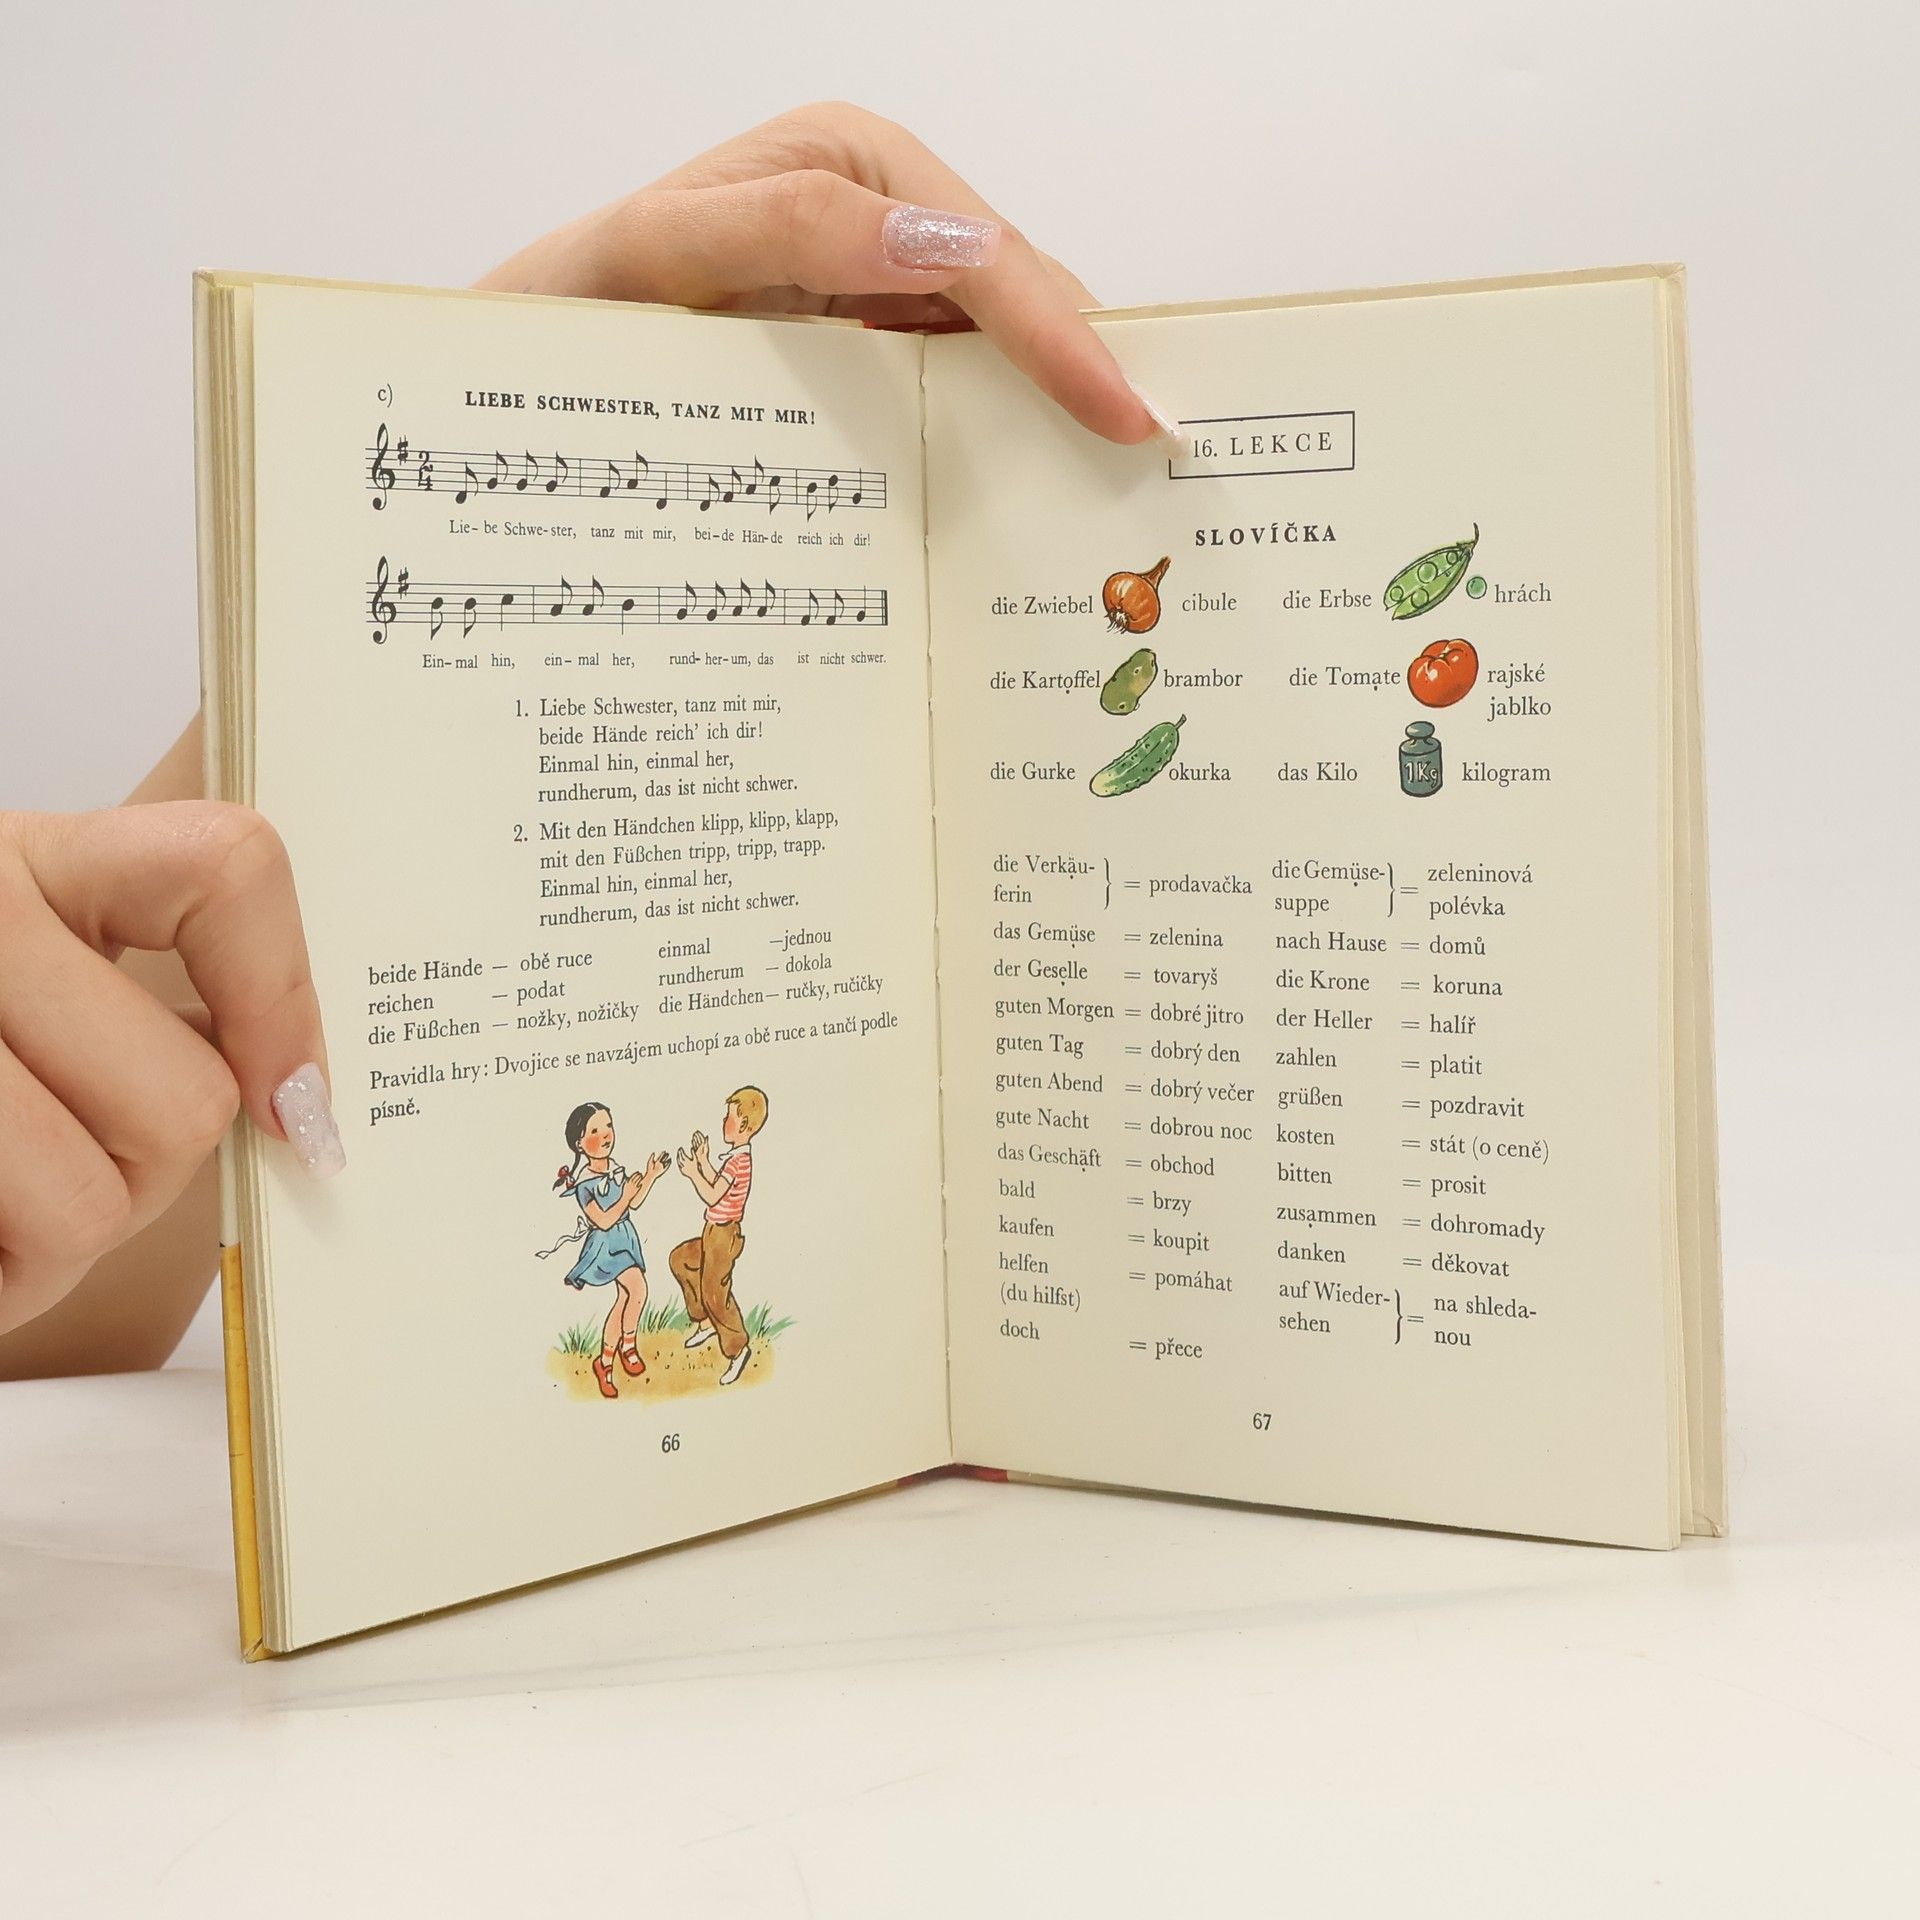 c) LIEBE SCHWESTER, TANZ MIT MIR!
2
4
Lie- be Schwe-ster, tanz mit mir, bei-de Hän-de reich ich dir!
Ein-mal hin, ein-mal her, rund-her-um, das ist nicht schwer.
1. Liebe Schwester, tanz mit mir,
beide Hände reich’ ich dir!
Einmal hin, einmal her,
rundherum, das ist nicht schwer.
2. Mit den Händchen klipp, klipp, klapp,
mit den Füßchen tripp, tripp, trapp.
Einmal hin, einmal her,
rundherum, das ist nicht schwer.
beide Hände — obě ruce einmal —jednou
reichen — podat rundherum — dokola
die Füßchen — nožky, nožičky die Händchen— ručky, ručičky
Pravidla hry: Dvojice se navzájem uchopí za obě ruce a tančí podle
písně.
66
16. LEKCE
SLOVÍČKA
die Zwiebel cibule die Erbse hrách
die Kartoffel brambor die Tomate rajské
jablko
die Gurke okurka das Kilo 1Kg kilogram
die Verkäu-
ferin } = prodavačka
das Gemüse = zelenina
der Geselle = tovaryš
guten Morgen = dobré jitro
guten Tag = dobrý den
guten Abend = dobrý večer
gute Nacht = dobrou noc
das Geschäft = obchod
bald = brzy
kaufen = koupit
helfen = pomáhat
(du hilfst)
doch = přece
die Gemüse- } = zeleninová
suppe polévka
nach Hause = domů
die Krone = koruna
der Heller = halíř
zahlen = platit
grüßen = pozdravit
kosten = stát (o ceně)
bitten = prosit
zusammen = dohromady
danken = děkovat
auf Wieder- } = na shleda-
sehen nou
67